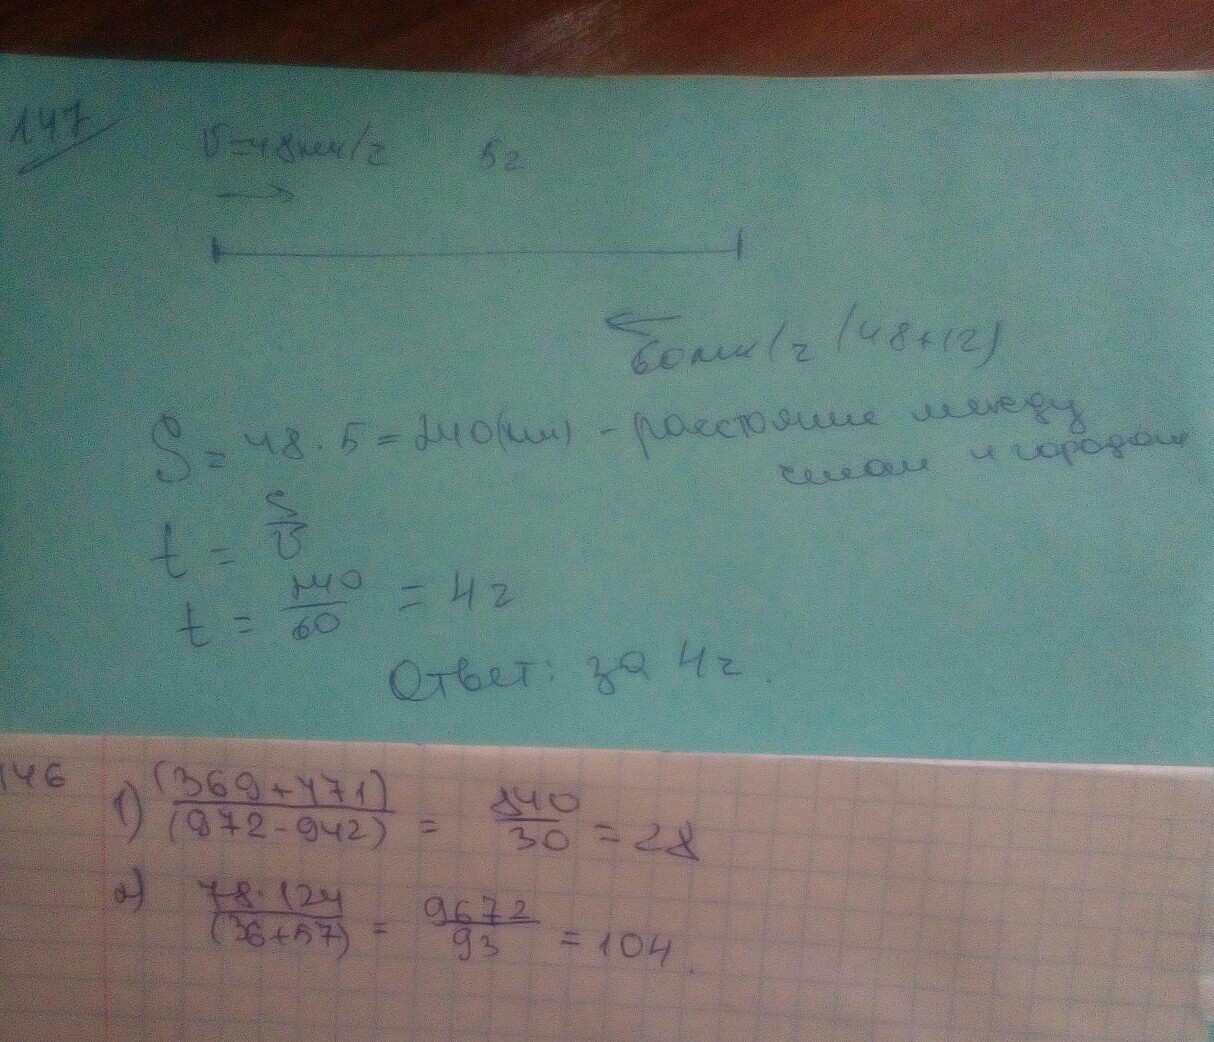 147
V=48км/г 5г
60км/г (48+12)
S = 48 · 5 = 240(км) - расстояние между
селом и городом
t = S/V
t = 240/60 = 4г
Ответ: за 4г.
146
1) (369+471)/(972-942) = 840/30 = 28
2) 78·124/(36+57) = 9672/93 = 104.